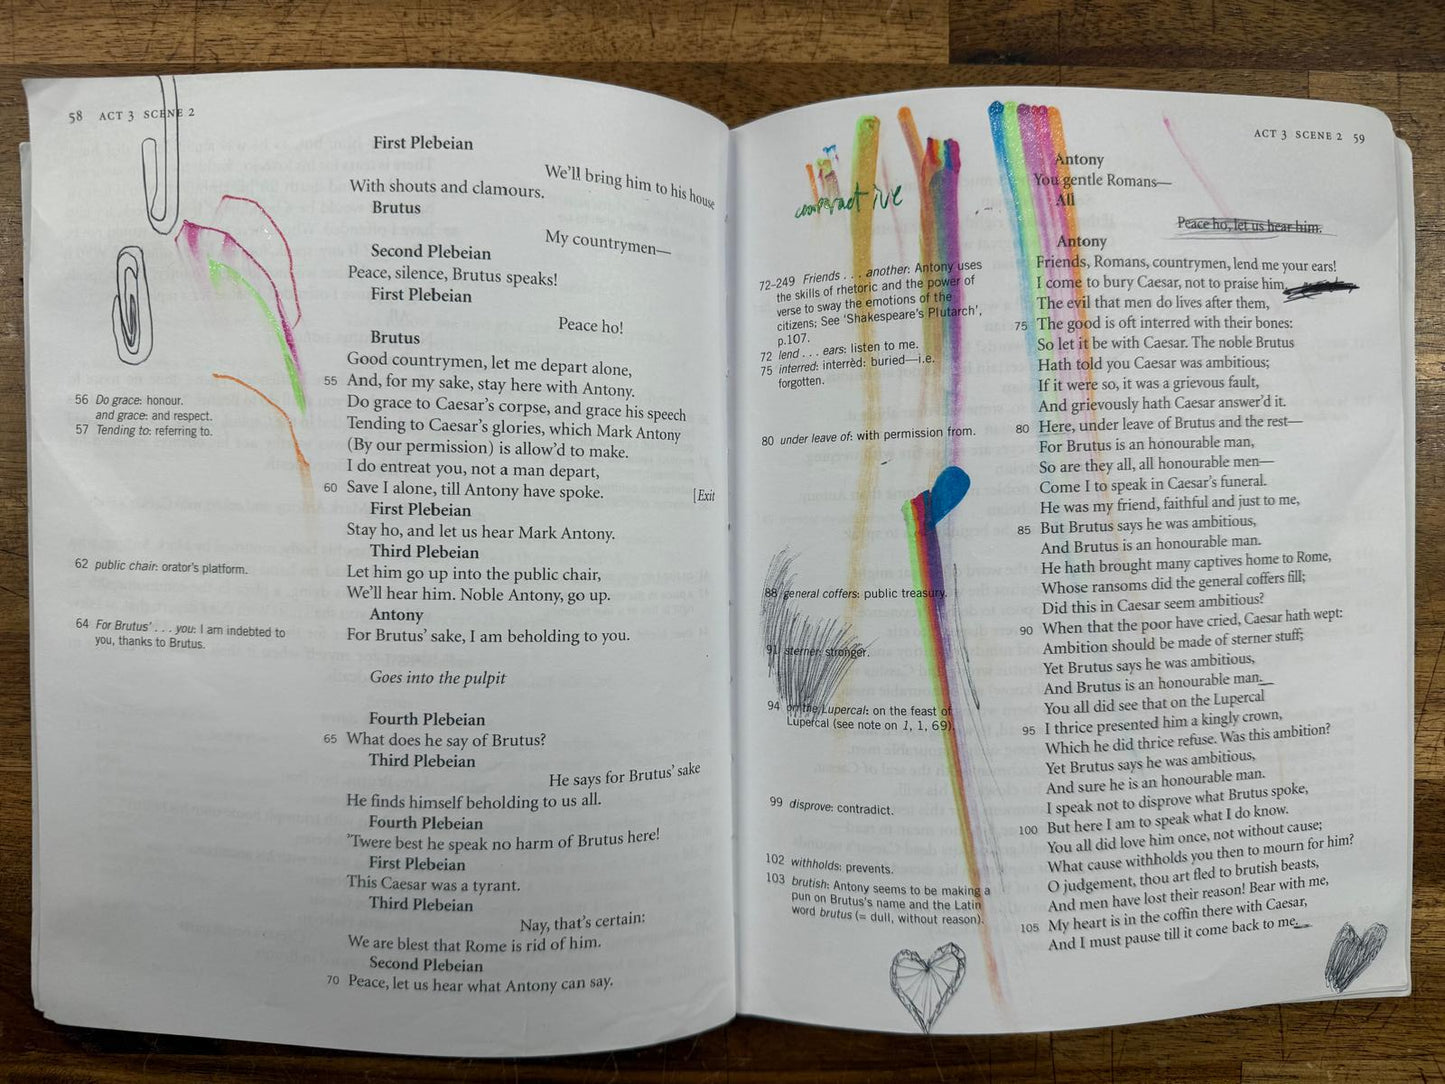 58 ACT 3 SCENE 2
First Plebeian
We'll bring him to his house
With shouts and clamours.
Brutus
My countrymen—
Second Plebeian
Peace, silence, Brutus speaks!
First Plebeian
Peace ho!
Brutus
Good countrymen, let me depart alone,
55 And, for my sake, stay here with Antony.
Do grace to Caesar's corpse, and grace his speech
Tending to Caesar's glories, which Mark Antony
(By our permission) is allow'd to make.
I do entreat you, not a man depart,
60 Save I alone, till Antony have spoke. [Exit
First Plebeian
Stay ho, and let us hear Mark Antony.
Third Plebeian
Let him go up into the public chair,
We'll hear him. Noble Antony, go up.
Antony
For Brutus' sake, I am beholding to you.
Goes into the pulpit
Fourth Plebeian
65 What does he say of Brutus?
Third Plebeian
He says for Brutus' sake
He finds himself beholding to us all.
Fourth Plebeian
'Twere best he speak no harm of Brutus here!
First Plebeian
This Caesar was a tyrant.
Third Plebeian
Nay, that's certain:
We are blest that Rome is rid of him.
Second Plebeian
70 Peace, let us hear what Antony can say.
56 Do grace: honour.
and grace: and respect.
57 Tending to: referring to.
62 public chair: orator's platform.
64 For Brutus' . . . you: I am indebted to
you, thanks to Brutus.
ACT 3 SCENE 2 59
Antony
You gentle Romans—
All
Peace ho, let us hear him.
Antony
Friends, Romans, countrymen, lend me your ears!
I come to bury Caesar, not to praise him.
The evil that men do lives after them,
75 The good is oft interred with their bones:
So let it be with Caesar. The noble Brutus
Hath told you Caesar was ambitious;
If it were so, it was a grievous fault,
And grievously hath Caesar answer'd it.
80 Here, under leave of Brutus and the rest—
For Brutus is an honourable man,
So are they all, all honourable men—
Come I to speak in Caesar's funeral.
He was my friend, faithful and just to me,
85 But Brutus says he was ambitious,
And Brutus is an honourable man.
He hath brought many captives home to Rome,
Whose ransoms did the general coffers fill;
Did this in Caesar seem ambitious?
90 When that the poor have cried, Caesar hath wept:
Ambition should be made of sterner stuff;
Yet Brutus says he was ambitious,
And Brutus is an honourable man.
You all did see that on the Lupercal
95 I thrice presented him a kingly crown,
Which he did thrice refuse. Was this ambition?
Yet Brutus says he was ambitious,
And sure he is an honourable man.
I speak not to disprove what Brutus spoke,
100 But here I am to speak what I do know.
You all did love him once, not without cause;
What cause withholds you then to mourn for him?
O judgement, thou art fled to brutish beasts,
And men have lost their reason! Bear with me,
105 My heart is in the coffin there with Caesar,
And I must pause till it come back to me.
72–249 Friends . . . another: Antony uses
the skills of rhetoric and the power of
verse to sway the emotions of the
citizens; See 'Shakespeare's Plutarch',
p.107.
72 lend . . . ears: listen to me.
75 interred: interrèd: buried—i.e.
forgotten.
80 under leave of: with permission from.
88 general coffers: public treasury.
91 sterner: stronger.
94 on the Lupercal: on the feast of
Lupercal (see note on 1, 1, 69).
99 disprove: contradict.
102 withholds: prevents.
103 brutish: Antony seems to be making a
pun on Brutus's name and the Latin
word brutus (= dull, without reason).